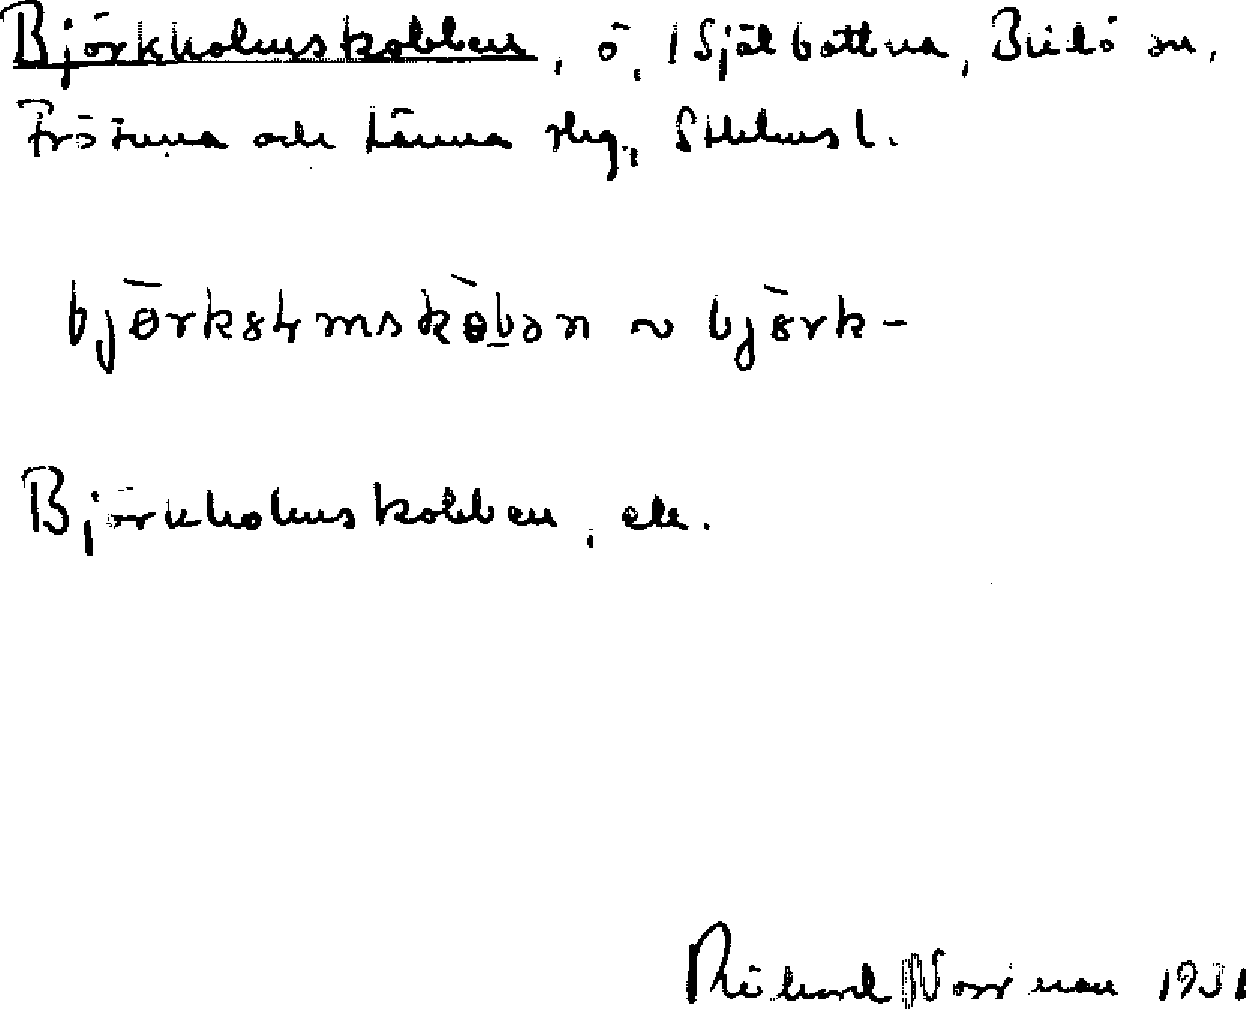 Björkholmskobben, ö, i Själbottna, Blidö sn,
Frötuna och Länna slg., Sthlms l.
bjȯrkshɷmskȯbən ~ björk-
Björkholmskobben, ek.
Rickard Norrman 1931